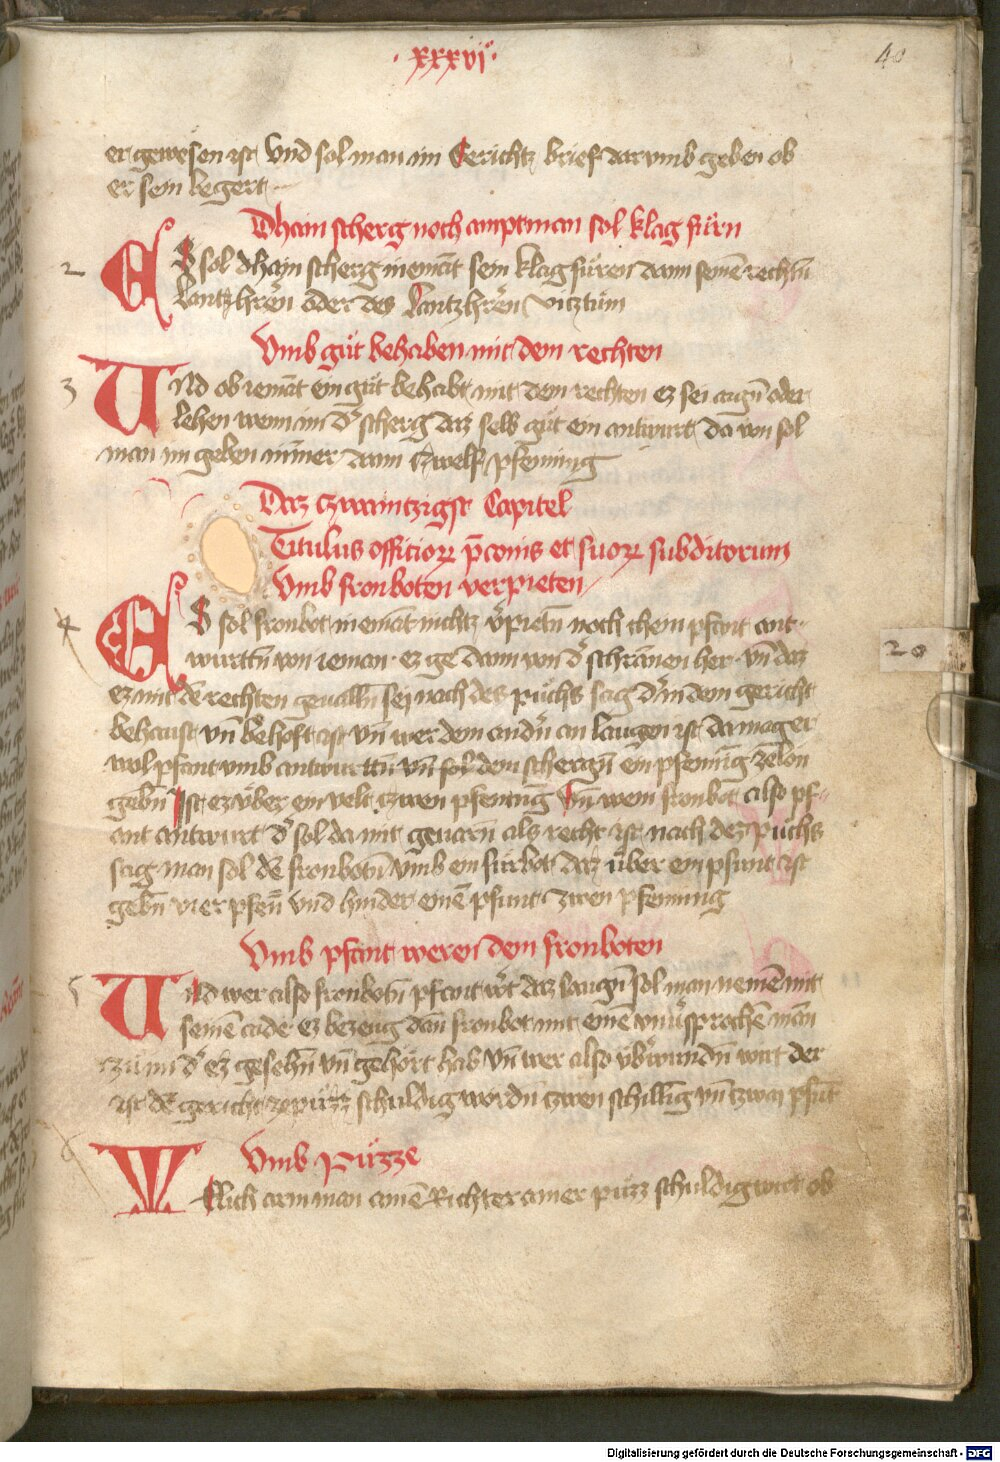 · xxxvi° ·
40
er gewesen ist Vnd sol man im Gerichtz brief darvmb geben ob
er sein begert
Dhain scherg noch amptman sol klag fürn
2
ES sol dhain scherg niemāt sein klag füren dann seinē rechtn̄
Lantzhrēn oder des Lantzhrēn Vicztum
Vmb gůt behaben mit dem rechten
3
VNd ob iemāt ein gůt behabt mit dem rechten ez sei aign̄ oder
lehen wenn im d' scherg daz selb gůt ein antwurt da von sol
man im geben nim̄er dann Czwelf pfenning
Daz czwaintzigst Capitel
Titulus officior p̄conis et suor subditorum
Vmb fronboten verpieten
4
ES sol fronbot niemāt nichtz v̓pietn̄ noch chein pfant ant-
wurttn̄ von ieman · ez ge dann von d' schrannen her · vn̄ daz
ez mit dē rechten geualln̄ sej nach des půchs sag d' in dem gericht
behaust vn̄ behoft ist vn̄ wer dem andn̄ an laugen ist da mag er
wol pfant vmb antwurttn̄ vn̄ sol dem schergn̄ ein pfennīg ze lon
gebn̄ Ist ez vͤber ein velt czwen pfennīg Vn̄ wem fronbot also pf-
ant antwurt d' sol da mit geuarn̄ als recht ist nach dez půchs
sag man sol dē fronbotn̄ vmb ein fürbot daz über ein pfunt ist
gebn̄ vier pfen̄ Vnd hinder einē pfunt zwen pfenning
20
Vmb pfant weren dem fronboten
5
VNd wer also fronbotn̄ pfant w't daz laugn̄ sol man nemē mit
seinē aide · ez bezeug dān fronbot mit einē vnu'sprochē mān
zů im d' ez gesehn̄ vn̄ gehört hab vn̄ wer also vb'wundn̄ wirt der
ist dē gericht ze půzz schuldig wordn̄ czwen schillīg vn̄ czwaj pfūt
6
Vmb Půzze
WElich arm man ainē Richter ainer půzz schuldig wirt ob
Digitalisierung gefördert durch die Deutsche Forschungsgemeinschaft - DFG